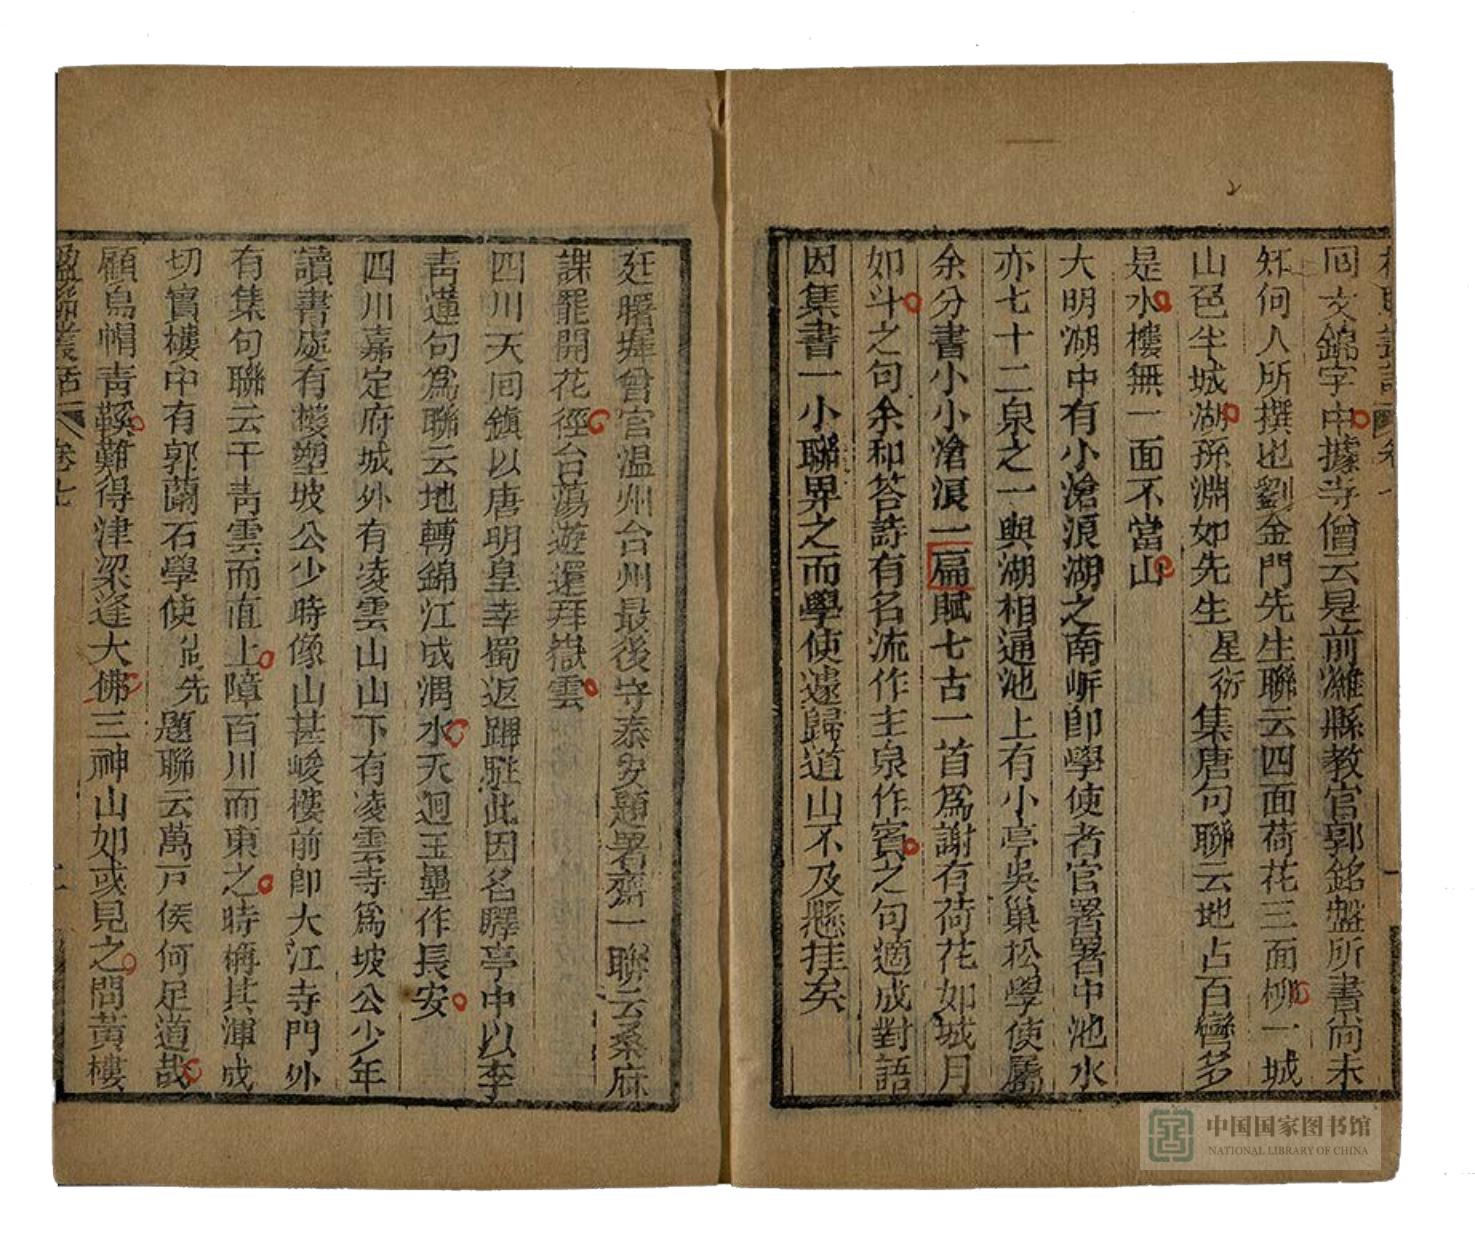 同文錦字中據寺僧云是前濰縣教官郭銘盤所書尚未
知何人所撰也劉金門先生聯云四面荷花三面柳一城
山色半城湖孫淵如先生星衍集唐句聯云地占百灣多
是水樓無一面不當山
大明湖中有小滄浪湖之南岍卽學使者官署署中池水
亦七十二泉之一與湖相通池上有小亭吳巢松學使屬
余分書小小滄浪一扁賦七古一首爲謝有荷花如城月
如斗之句余和答詩有名流作主泉作賓之句適成對語
因集書一小聯畀之而學使遽歸道山不及懸挂矣
廷曙墀曾官温州台州最後守泰安題署齋一聯云桑麻
課罷開花徑台蕩遊還拜嶽雲
四川天回鎮以唐明皇幸蜀返蹕駐此因名驛亭中以李
青蓮句爲聯云地轉錦江成渭水天迴玉壘作長安
四川嘉定府城外有凌雲山山下有凌雲寺爲坡公少年
讀書處有樓塑坡公少時像山甚峻樓前卽大江寺門外
有集句聯云干青雲而直上障百川而東之時稱其渾成
切實樓中有郭蘭石學使尚先題聯云萬戸侯何足道哉
顧烏帽青鞵難得津梁逢大佛三神山如或見之問黃樓
楹聯叢話 卷七 二
中国国家图书馆
NATIONAL LIBRARY OF CHINA